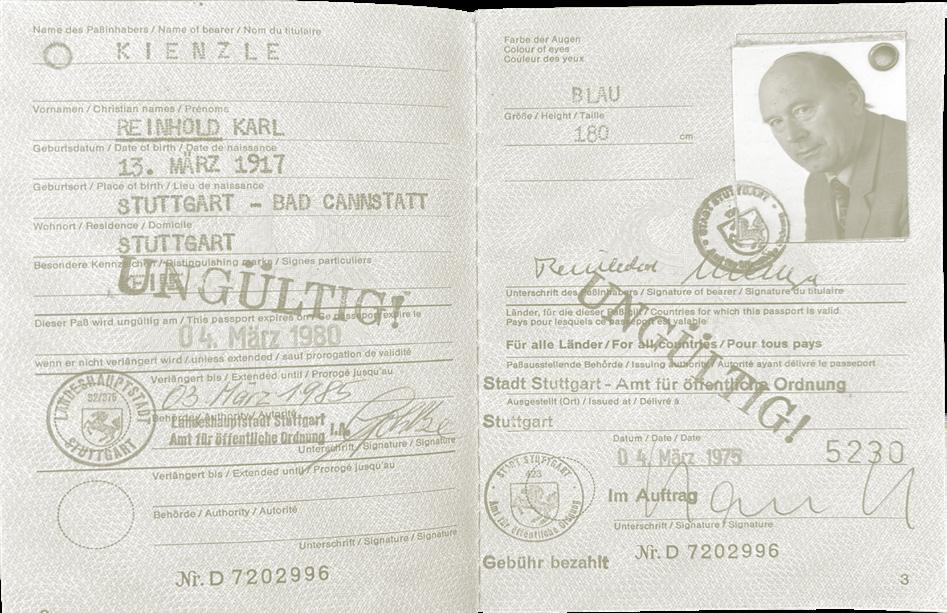 Name des Paßinhabers / Name of bearer / Nom du titulaire
KIENZLE
Vornamen / Christian names / Prénoms
REINHOLD KARL
Geburtsdatum / Date of birth / Date de naissance
13. MÄRZ 1917
Geburtsort / Place of birth / Lieu de naissance
STUTTGART - BAD CANNSTATT
Wohnort / Residence / Domicile
STUTTGART
Besondere Kennzeichen / Distinguishing marks / Signes particuliers
UNGÜLTIG!
Dieser Paß wird ungültig am / This passport expires on / Ce passeport expire le
04. März 1980
wenn er nicht verlängert wird / unless extended / sauf prorogation de validité
Verlängert bis / Extended until / Prorogé jusqu'au
03. März 1985
Behörde / Authority / Autorité
Landeshauptstadt Stuttgart
Amt für öffentliche Ordnung i.A.
Unterschrift / Signature / Signature
LANDESHAUPTSTADT
32/375
STUTTGART
Verlängert bis / Extended until / Prorogé jusqu'au
Behörde / Authority / Autorité
Unterschrift / Signature / Signature
Nr. D 7202996
Farbe der Augen
Colour of eyes
Couleur des yeux
BLAU
Größe / Height / Taille
180 cm
STADT STUTTGART
Unterschrift des Paßinhabers / Signature of bearer / Signature du titulaire
Länder, für die dieser Paß gilt / Countries for which this passport is valid
Pays pour lesquels ce passeport est valable
UNGÜLTIG!
Für alle Länder / For all countries / Pour tous pays
Paßausstellende Behörde / Issuing Authority / Autorité ayant délivré le passeport
Stadt Stuttgart - Amt für öffentliche Ordnung
Ausgestellt (Ort) / Issued at / Délivré à
Stuttgart
Datum / Date / Date
04. März 1975
5230
STADT STUTTGART
423
Amt für öffentliche Ordnung
Im Auftrag
Unterschrift / Signature / Signature
Gebühr bezahlt
Nr. D 7202996
3